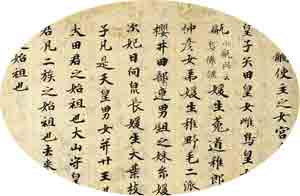 使主之女宮
皇子矢田皇女雌鳥皇
媛生菟道稚郎
仲彦女弟媛生稚野毛二派
櫻井田部連男鉏之妹糸媛
次妃日向泉長媛生大葉枝
子凡是天皇男女并廿王
大田君之始祖也大山守皇
君凡二族之始祖也去来
之始祖也